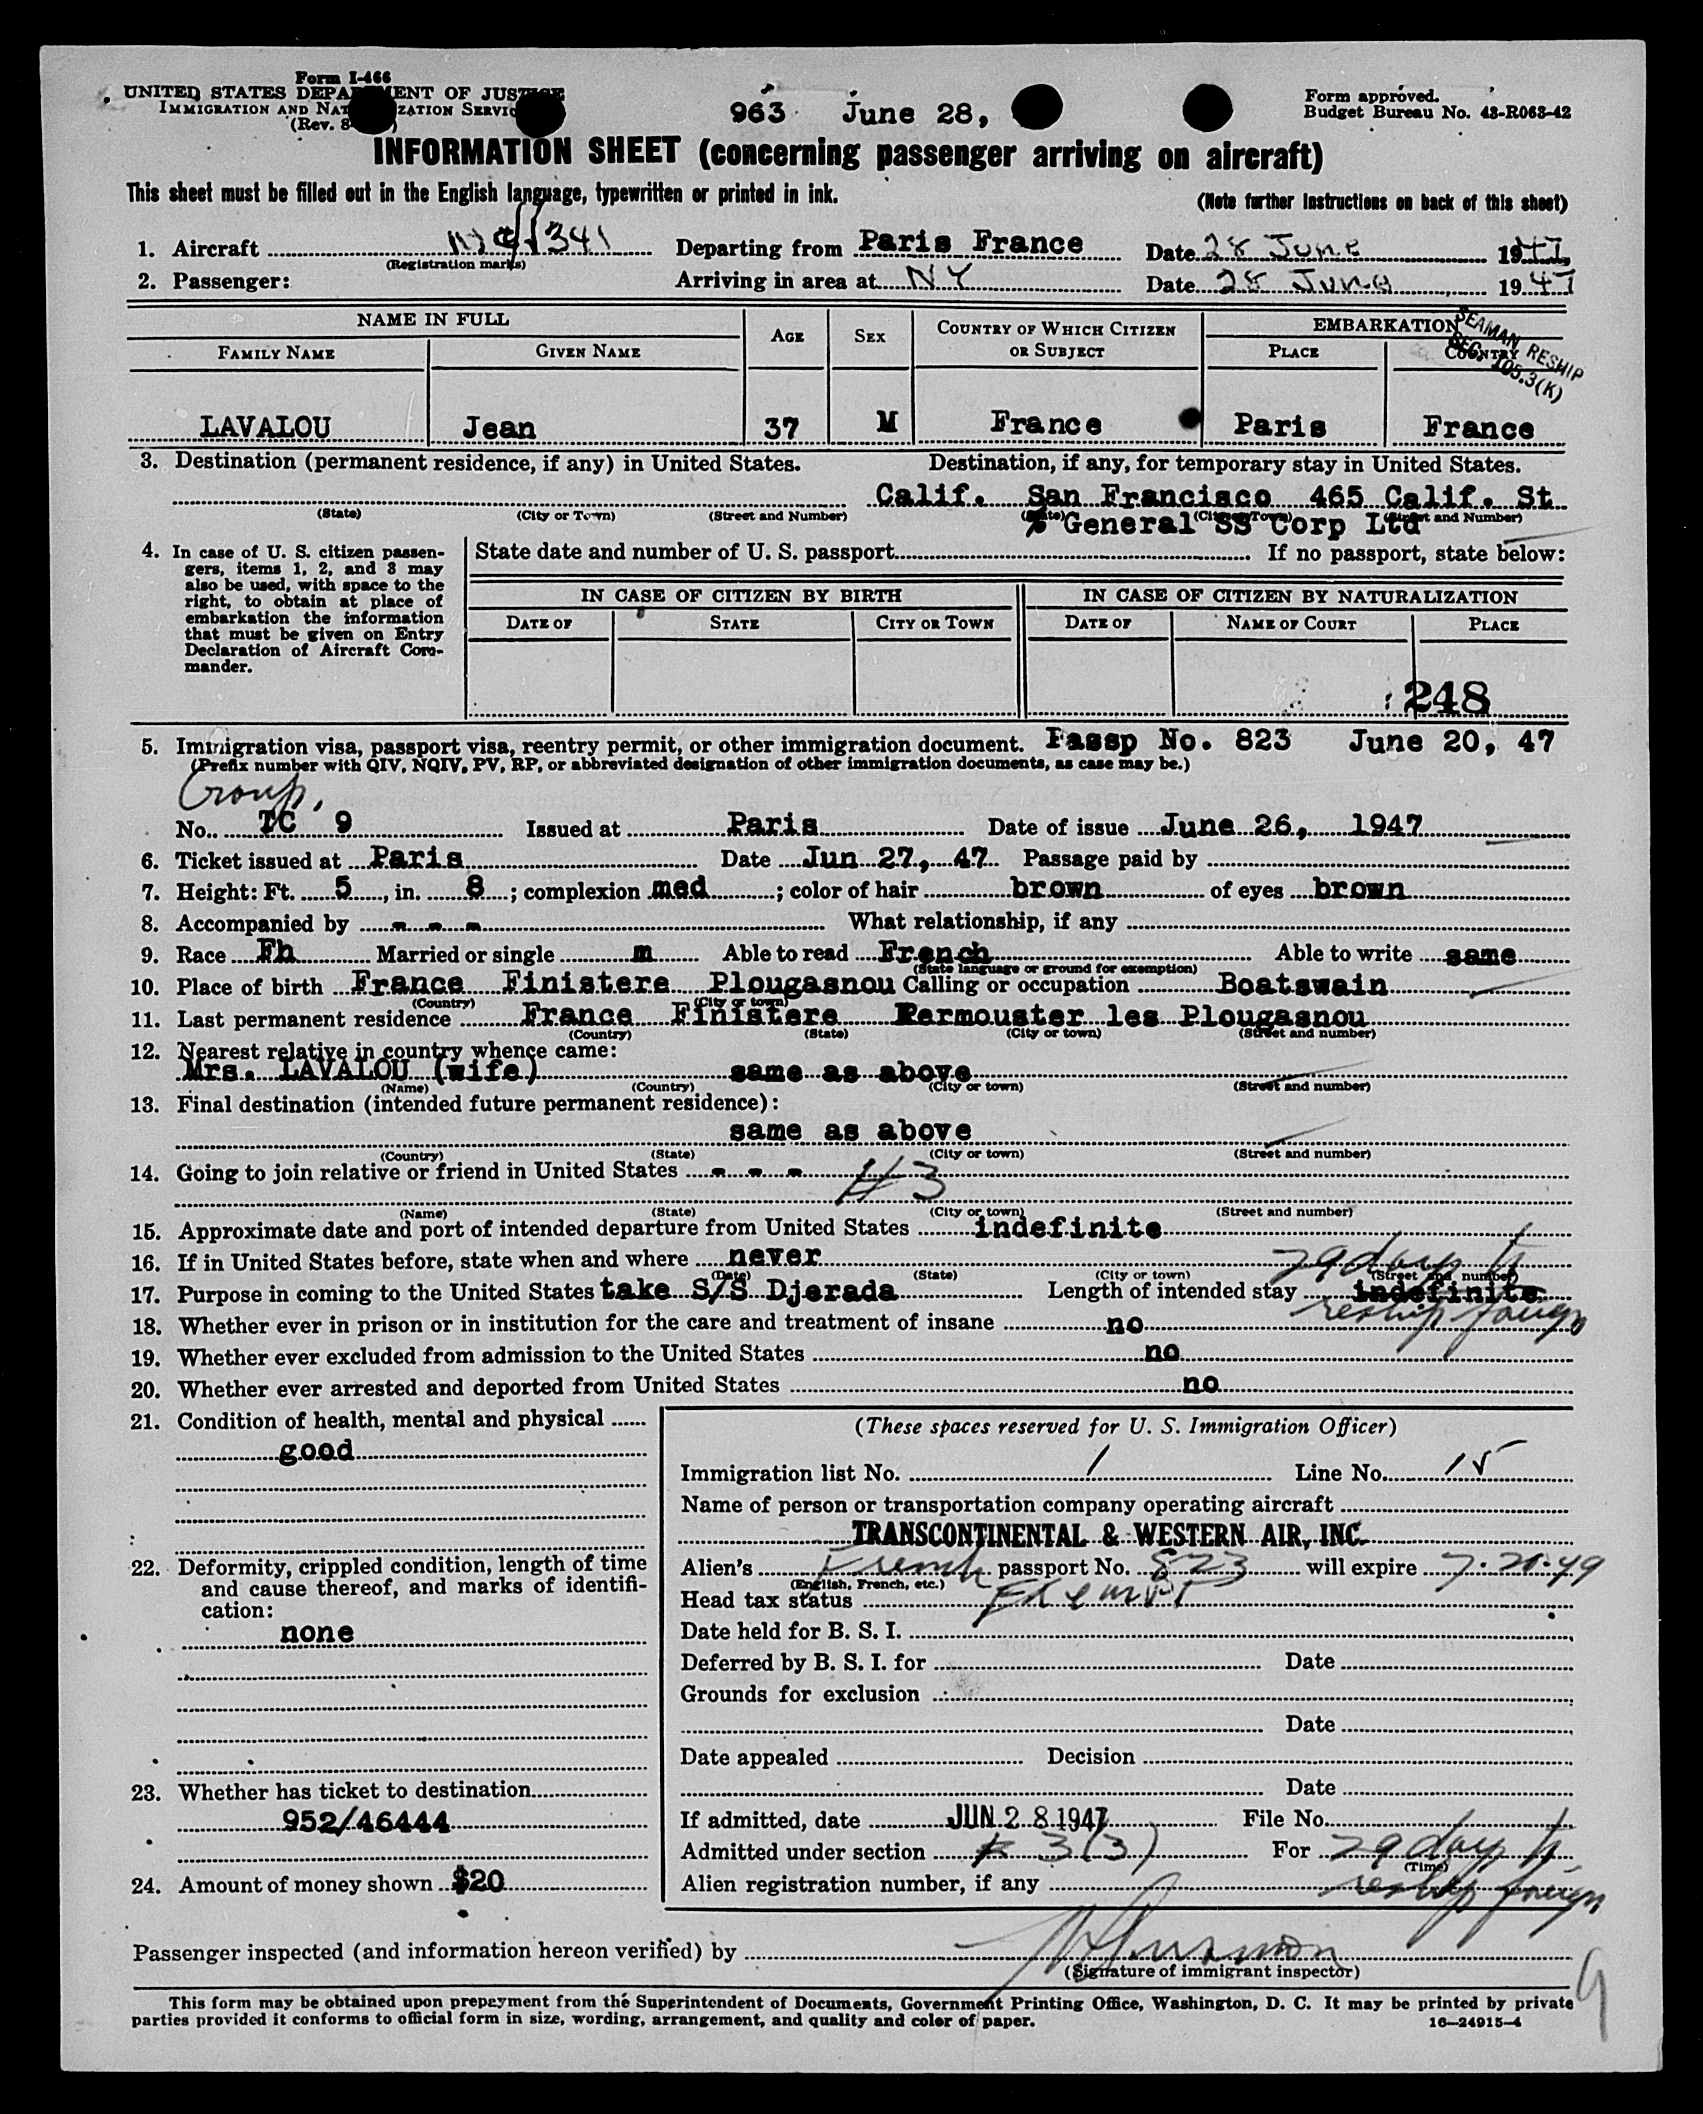 Form I-466
UNITED STATES DEPARTMENT OF JUSTICE
IMMIGRATION AND NATURALIZATION SERVICE
(Rev. 8- )
963 June 28,
Form approved.
Budget Bureau No. 43-R063-42
INFORMATION SHEET (concerning passenger arriving on aircraft)
This sheet must be filled out in the English language, typewritten or printed in ink.
(Note further instructions on back of this sheet)
1. Aircraft 341 Departing from Paris France Date 28 June 1947
(Registration marks)
2. Passenger: Arriving in area at NY Date 28 June 1947
NAME IN FULL
FAMILY NAME GIVEN NAME AGE SEX COUNTRY OF WHICH CITIZEN OR SUBJECT EMBARKATION PLACE COUNTRY
SEAMAN RESHIP
SEC. 105.3(K)
LAVALOU Jean 37 M France Paris France
3. Destination (permanent residence, if any) in United States. Destination, if any, for temporary stay in United States.
Calif. San Francisco 465 Calif. St
(State) (City or Town) (Street and Number) (State) (City or Town) (Street and Number)
% General SS Corp Ltd
4. In case of U. S. citizen passengers, items 1, 2, and 3 may also be used, with space to the right, to obtain at place of embarkation the information that must be given on Entry Declaration of Aircraft Commander.
State date and number of U. S. passport If no passport, state below:
IN CASE OF CITIZEN BY BIRTH IN CASE OF CITIZEN BY NATURALIZATION
DATE OF STATE CITY OR TOWN DATE OF NAME OF COURT PLACE
248
5. Immigration visa, passport visa, reentry permit, or other immigration document. Passp No. 823 June 20, 47
(Prefix number with QIV, NQIV, PV, RP, or abbreviated designation of other immigration documents, as case may be.)
Group,
No. TC 9 Issued at Paris Date of issue June 26, 1947
6. Ticket issued at Paris Date Jun 27, 47 Passage paid by
7. Height: Ft. 5, in. 8; complexion med; color of hair brown of eyes brown
8. Accompanied by - - - What relationship, if any
9. Race Fh Married or single m Able to read French Able to write same
(State language or ground for exemption)
10. Place of birth France Finistere Plougasnou Calling or occupation Boatswain
(Country) (City or town)
11. Last permanent residence France Finistere Kermouster les Plougasnou
(Country) (State) (City or town) (Street and number)
12. Nearest relative in country whence came:
Mrs. LAVALOU (wife) same as above
(Name) (Country) (City or town) (Street and number)
13. Final destination (intended future permanent residence):
same as above
(Country) (State) (City or town) (Street and number)
14. Going to join relative or friend in United States - - -
#3
(Name) (State) (City or town) (Street and number)
15. Approximate date and port of intended departure from United States indefinite
16. If in United States before, state when and where never
29 days to
(Date) (State) (City or town) (Street and number)
17. Purpose in coming to the United States take S/S Djerada Length of intended stay indefinite
reship foreign
18. Whether ever in prison or in institution for the care and treatment of insane no
19. Whether ever excluded from admission to the United States no
20. Whether ever arrested and deported from United States no
21. Condition of health, mental and physical
good
22. Deformity, crippled condition, length of time and cause thereof, and marks of identification:
none
23. Whether has ticket to destination
952/46444
24. Amount of money shown $20
(These spaces reserved for U. S. Immigration Officer)
Immigration list No. 1 Line No. 15
Name of person or transportation company operating aircraft
TRANSCONTINENTAL & WESTERN AIR, INC.
Alien's French passport No. 823 will expire 7-20-49
(English, French, etc.)
Head tax status Exempt
Date held for B. S. I.
Deferred by B. S. I. for Date
Grounds for exclusion
Date
Date appealed Decision
Date
If admitted, date JUN 28 1947 File No.
Admitted under section 3(3) For 29 days to
(Time)
Alien registration number, if any reship foreign
Passenger inspected (and information hereon verified) by
(Signature of immigrant inspector)
9
This form may be obtained upon prepayment from the Superintendent of Documents, Government Printing Office, Washington, D. C. It may be printed by private
parties provided it conforms to official form in size, wording, arrangement, and quality and color of paper.
16—24915-4